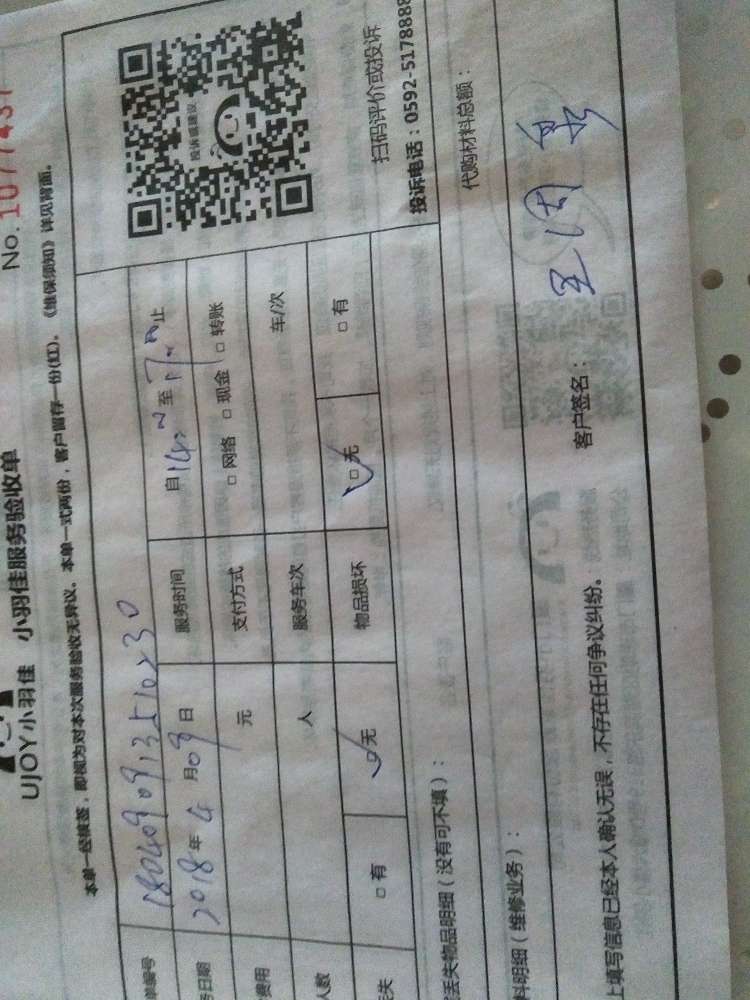 UJOY小羽佳 小羽佳服务验收单
No.1077437
本单一经核签，即视为对本次服务验收无异议。本单一式两份，客户留存一份(红)。《维保须知》详见背面。
单编号 1804090913510230
务日期 2018年4月09日 服务时间 自14:00至17:00止
费用 元 支付方式 □网络 □现金 □转账
人数 人 服务车次 车/次
丢失 □有 □无 物品损坏 □无 □有
投诉或建议
扫码评价或投诉
投诉电话：0592-5178888
丢失物品明细（没有可不填）：
代购材料总额：
料明细（维修业务）：
上填写信息已经本人确认无误，不存在任何争议纠纷。
客户签名：